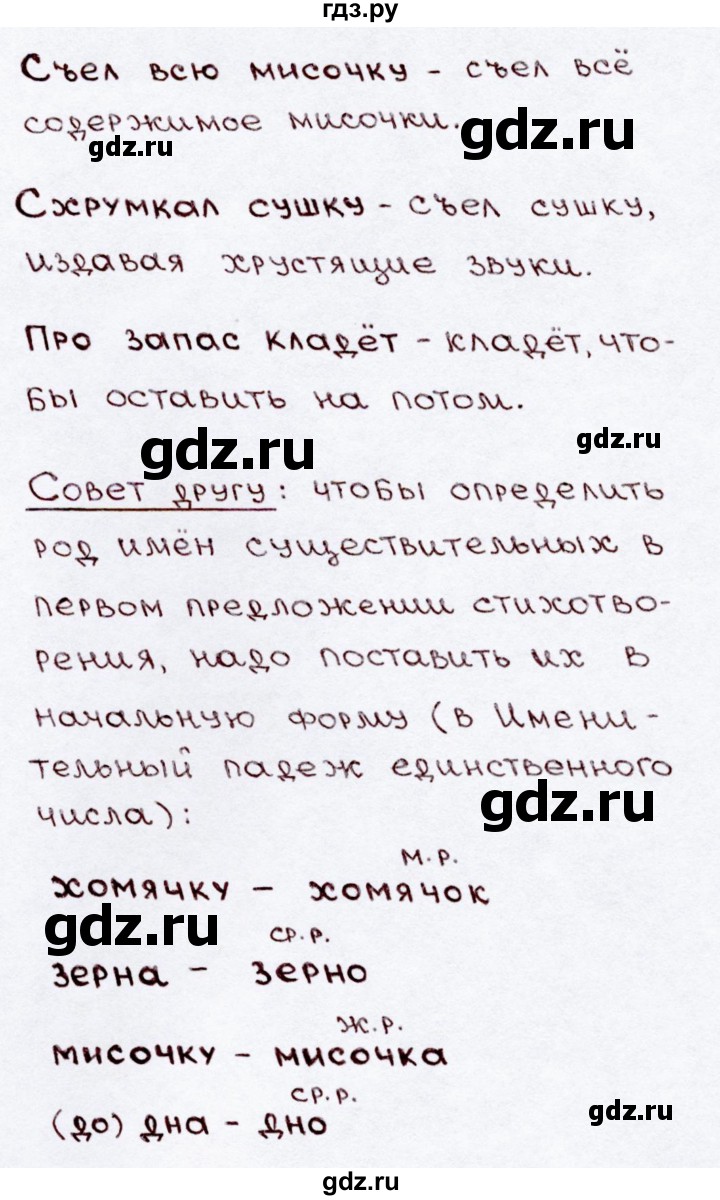 гдз.ру
Съел всю мисочку - съел всё
содержимое мисочки.
gdz.ru
gdz.ru
Схрумкал сушку - съел сушку,
издавая хрустящие звуки.
Про запас кладёт - кладёт, что-
бы оставить на потом.
gdz.ru
gdz.ru
Совет другу: чтобы определить
род имён существительных в
первом предложении стихотво-
рения, надо поставить их в
начальную форму (в Имени-
тельный падеж единственного
числа):
gdz.ru
м.р.
хомячку - хомячок
gdz.ru
ср.р.
зерна - зерно
ж.р.
мисочку - мисочка
ср.р.
(до) дна - дно
gdz.ru
gdz.ru